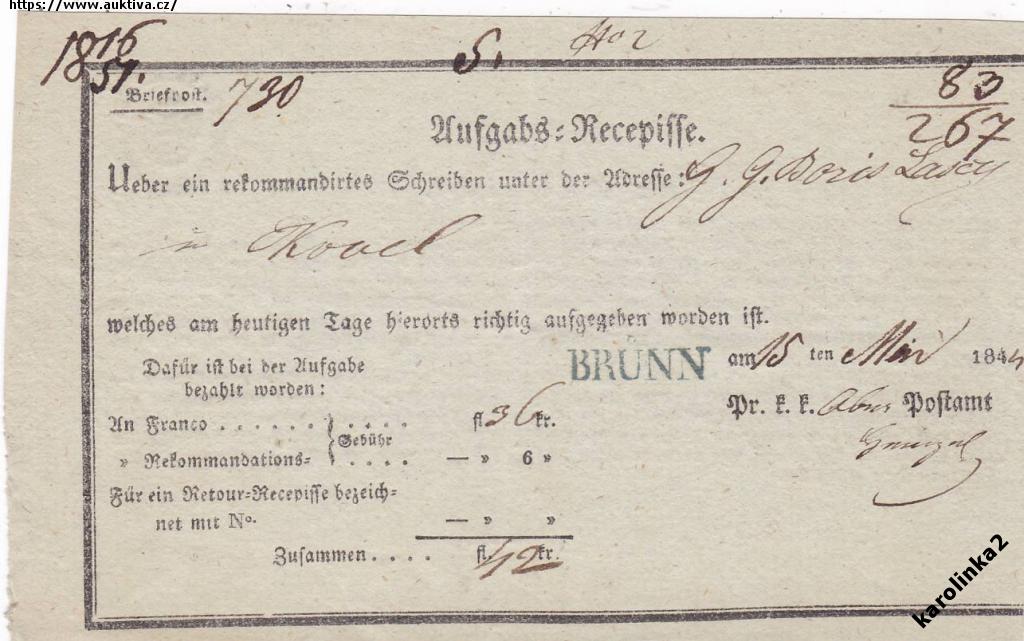 https://www.auktiva.cz/
1816
51.
S.
Briefpost.
730
83
267
Aufgabs-Recepisse.
Ueber ein rekommandirtes Schreiben unter der Adresse: G. G. Boris
welches am heutigen Tage hierorts richtig aufgegeben worden ist.
BRÜNN am 15 ten Mai 1844
Dafür ist bei der Aufgabe
bezahlt worden:
Pr. k. k. Postamt
An Franco . . . . . . . . . . fl. 36 kr.
Gebühr
» Rekommandations- . . . . — » 6 »
Für ein Retour-Recepisse bezeich-
net mit No. — » »
Zusammen . . . . fl. 42 kr.
karolinka2